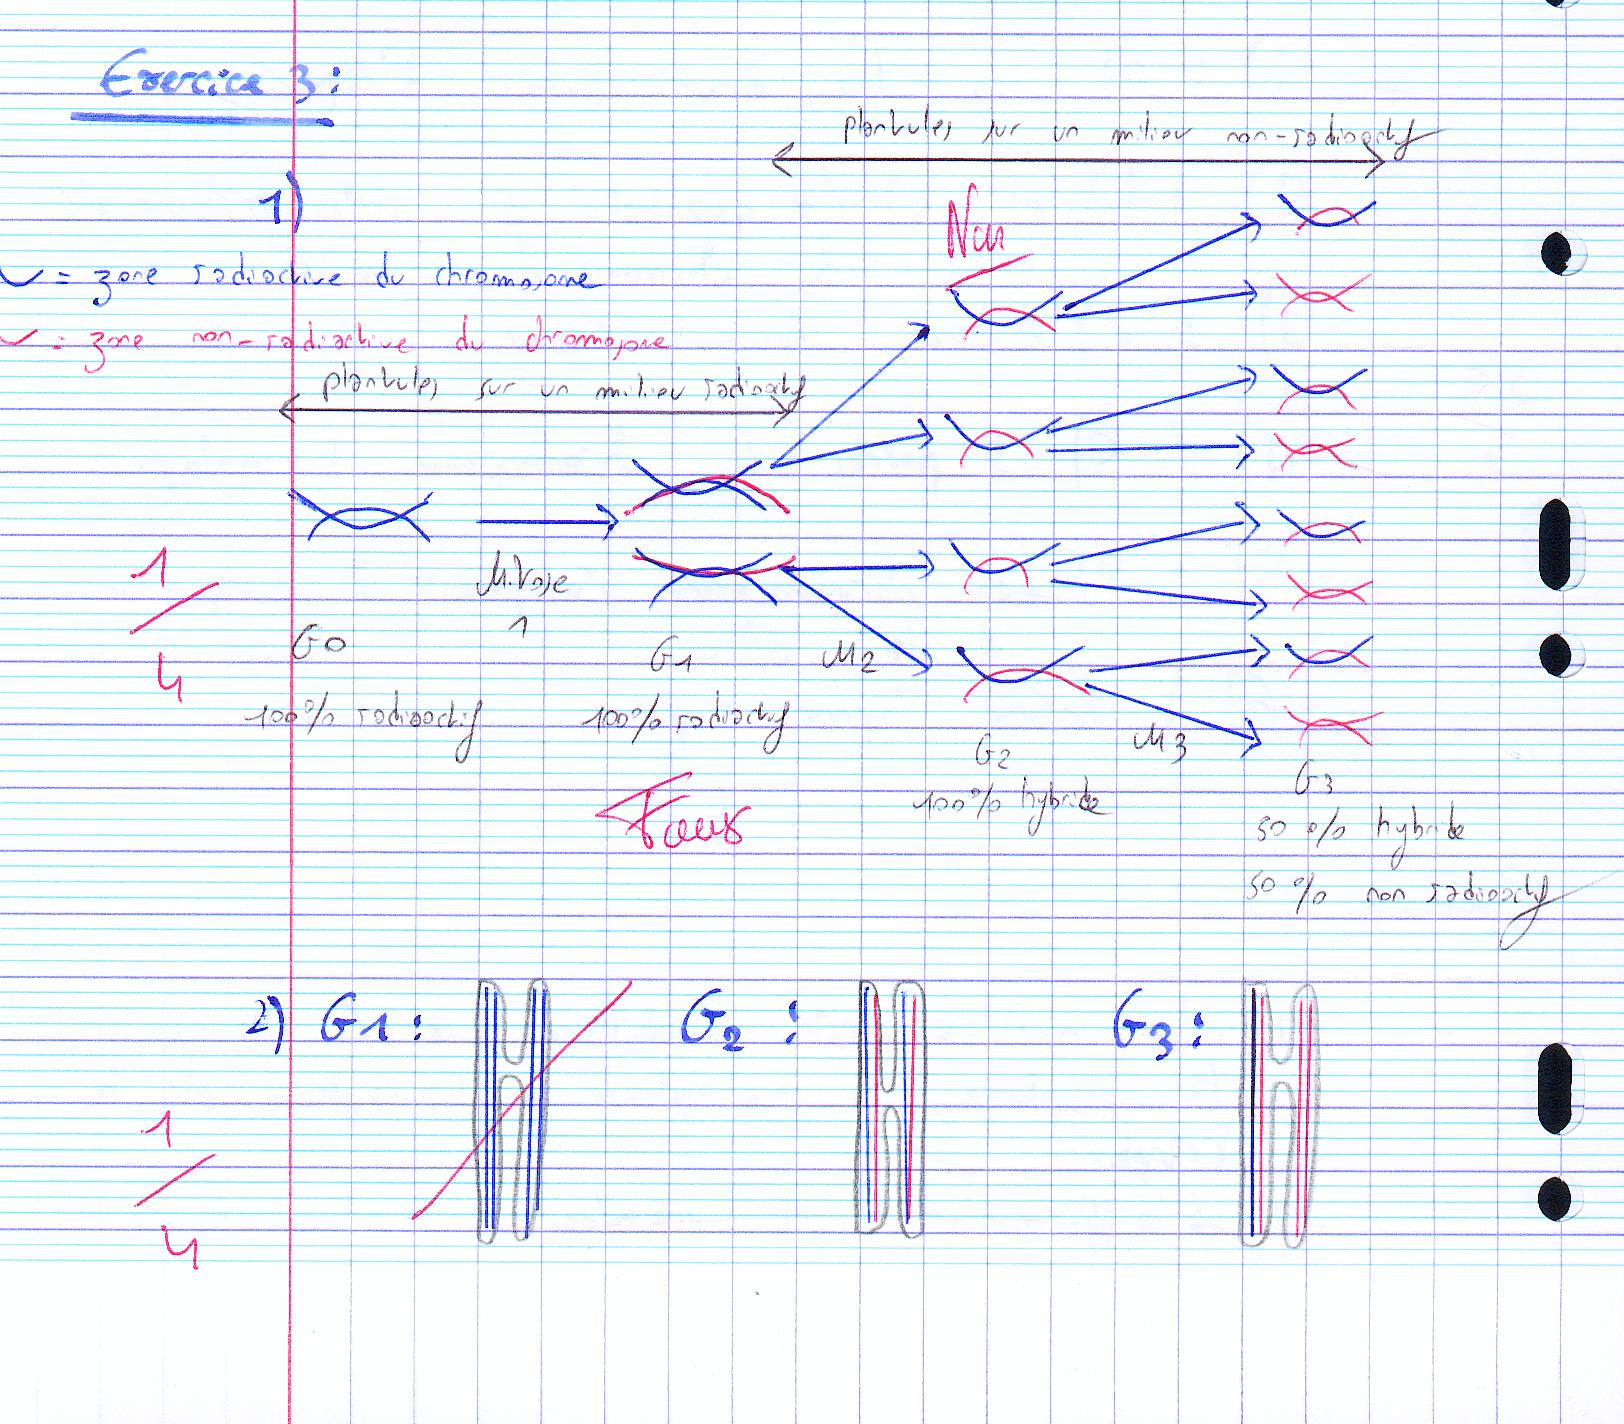 Exercice 3 :
plantules sur un milieu non-radioactif
1)
Non
= zone radioactive du chromosome
= zone non-radiactive du chromosome
plantules sur un milieu radioactif
Mitose
1
1
4
G0
G1
M2
100% radioactif
100% radiactif
G2
M3
100% hybride
G3
Faux
50 % hybride
50 % non radioactif
2) G1 :
G2 :
G3 :
1
4